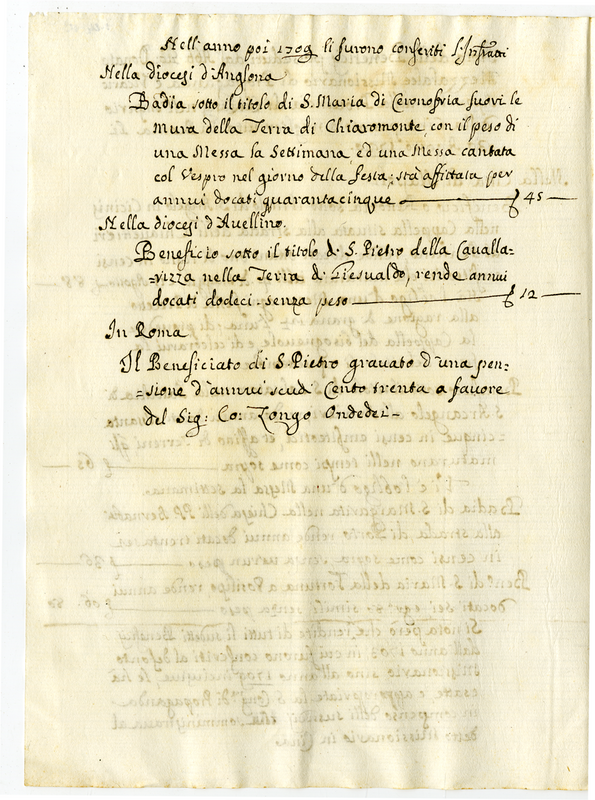 Nell'anno poi 1709 li furono conferiti l'Infratti
Nella diocesi d'Anglona
Badia sotto il titolo di S. Maria di Ceronofria fuori le
mura della Terra di Chiaromonte, con il peso di
una Messa la Settimana, ed una Messa cantata
col Vespro nel giorno della festa; stà affittata per
annui docati quarantacinque 45
Nella diocesi d'Avellino.
Beneficio sotto il titolo di S. Pietro della Cavalla-
-rizza nella Terra di Giesualdo, rende annui
docati dodeci senza peso 12
In Roma
Il Beneficiato di S. Pietro gravato d'una pen:
=sione d'annui scudi Cento trenta a favore
del Sig: Co: Zongo Ondedei-